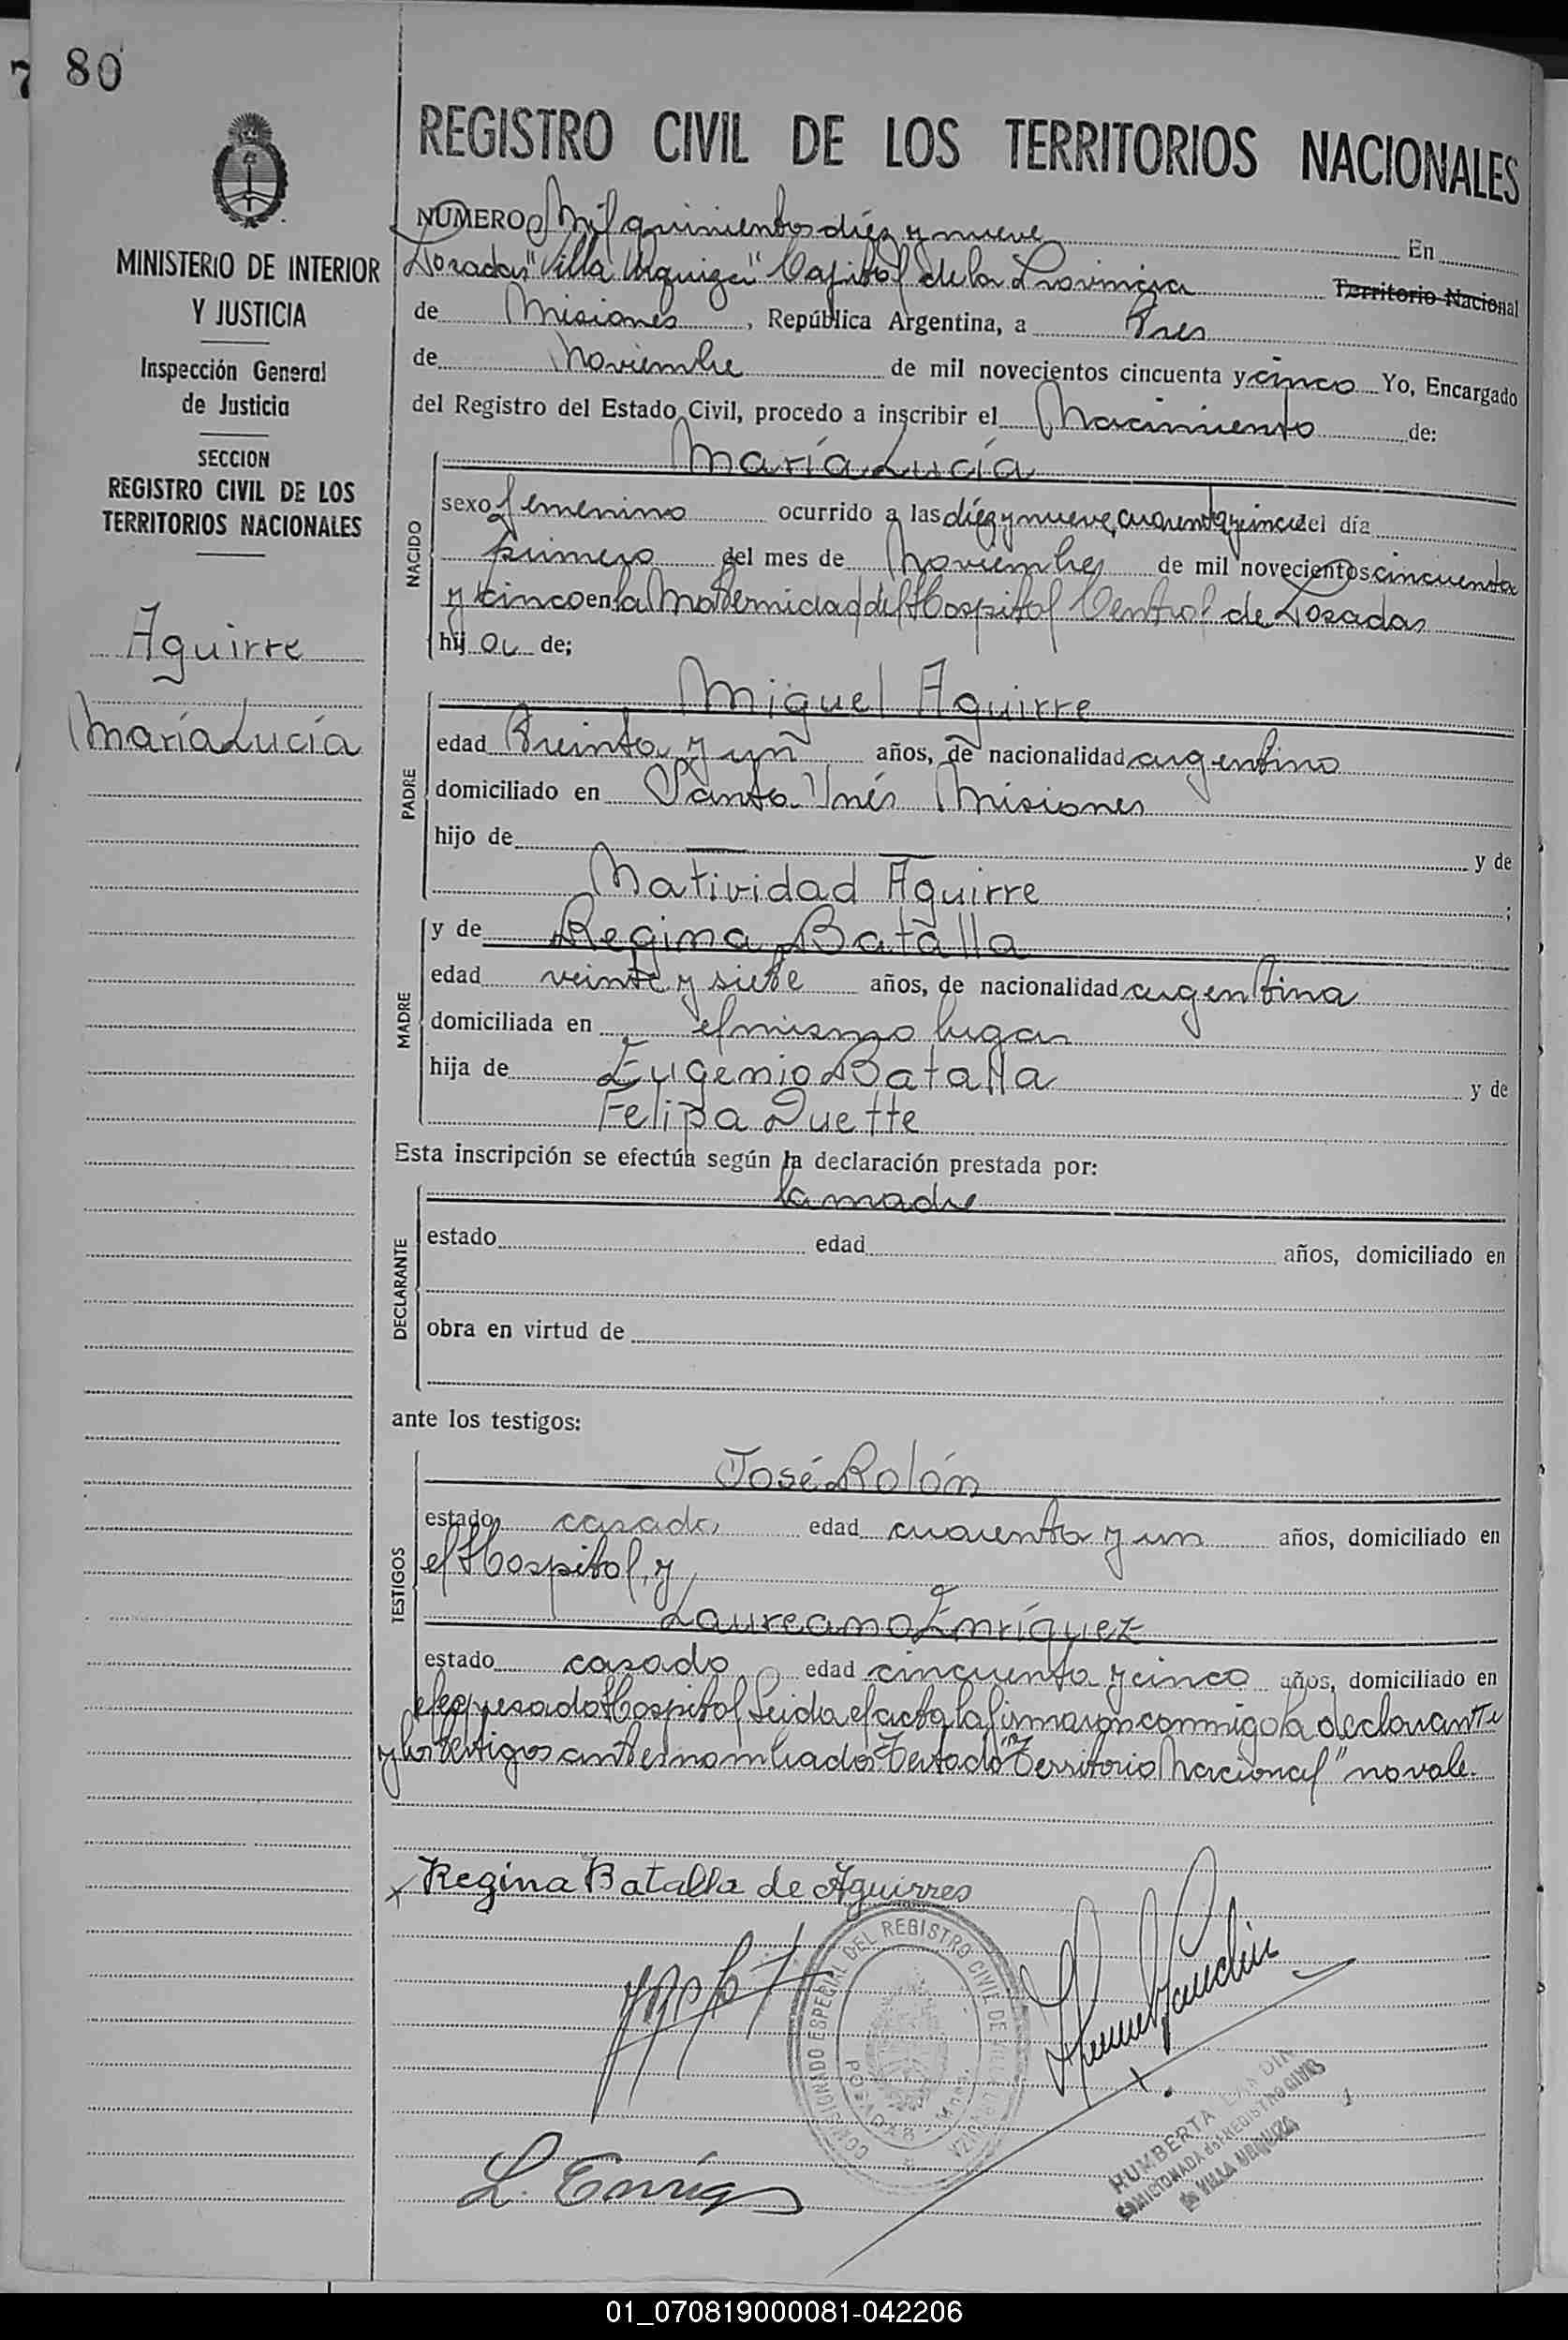 80
REGISTRO CIVIL DE LOS TERRITORIOS NACIONALES
MINISTERIO DE INTERIOR
Y JUSTICIA
Inspección General
de Justicia
SECCION
REGISTRO CIVIL DE LOS
TERRITORIOS NACIONALES
Aguirre
María Lucía
NUMERO Mil quinientos diéz y nueve En
Posadas "Villa Urquiza" Capital de la Provincia Territorio Nacional
de Misiones, República Argentina, a tres
de Noviembre de mil novecientos cincuenta y cinco Yo, Encargado
del Registro del Estado Civil, procedo a inscribir el Nacimiento de:
NACIDO
María Lucía
sexo femenino ocurrido a las diéz y nueve, cuarenta y cinco del día
primero del mes de Noviembre de mil novecientos cincuenta
y cinco en la Maternidad del Hospital Central de Posadas
hij a de;
PADRE
Miguel Aguirre
edad treinta y un años, de nacionalidad argentino
domiciliado en Santa Inés Misiones
hijo de — — y de
Natividad Aguirre ;
MADRE
y de Regina Batalla
edad veinte y siete años, de nacionalidad argentina
domiciliada en el mismo lugar
hija de Eugenio Batalla y de
Felipa Duette
Esta inscripción se efectúa según la declaración prestada por:
DECLARANTE
la madre
estado edad años, domiciliado en
obra en virtud de
ante los testigos:
TESTIGOS
José Rolón
estado casado edad cuarenta y un años, domiciliado en
el Hospital, y
Laureano Enríquez
estado casado edad cincuenta y cinco años, domiciliado en
el expresado Hospital, Leida el acta, la firmaron conmigo la declarante
y los testigos antes nombrados Testado "Territorio Nacional" no vale.
x Regina Batalla de Aguirres
COMISIONADO ESPECIAL DEL REGISTRO CIVIL DE VILLA URQUIZA
POSADAS - Mnes.
L. Enriq
HUMBERTA
COMICIONADA del REGISTRO CIVIL
DE VILLA URQUIZA
01_070819000081-042206